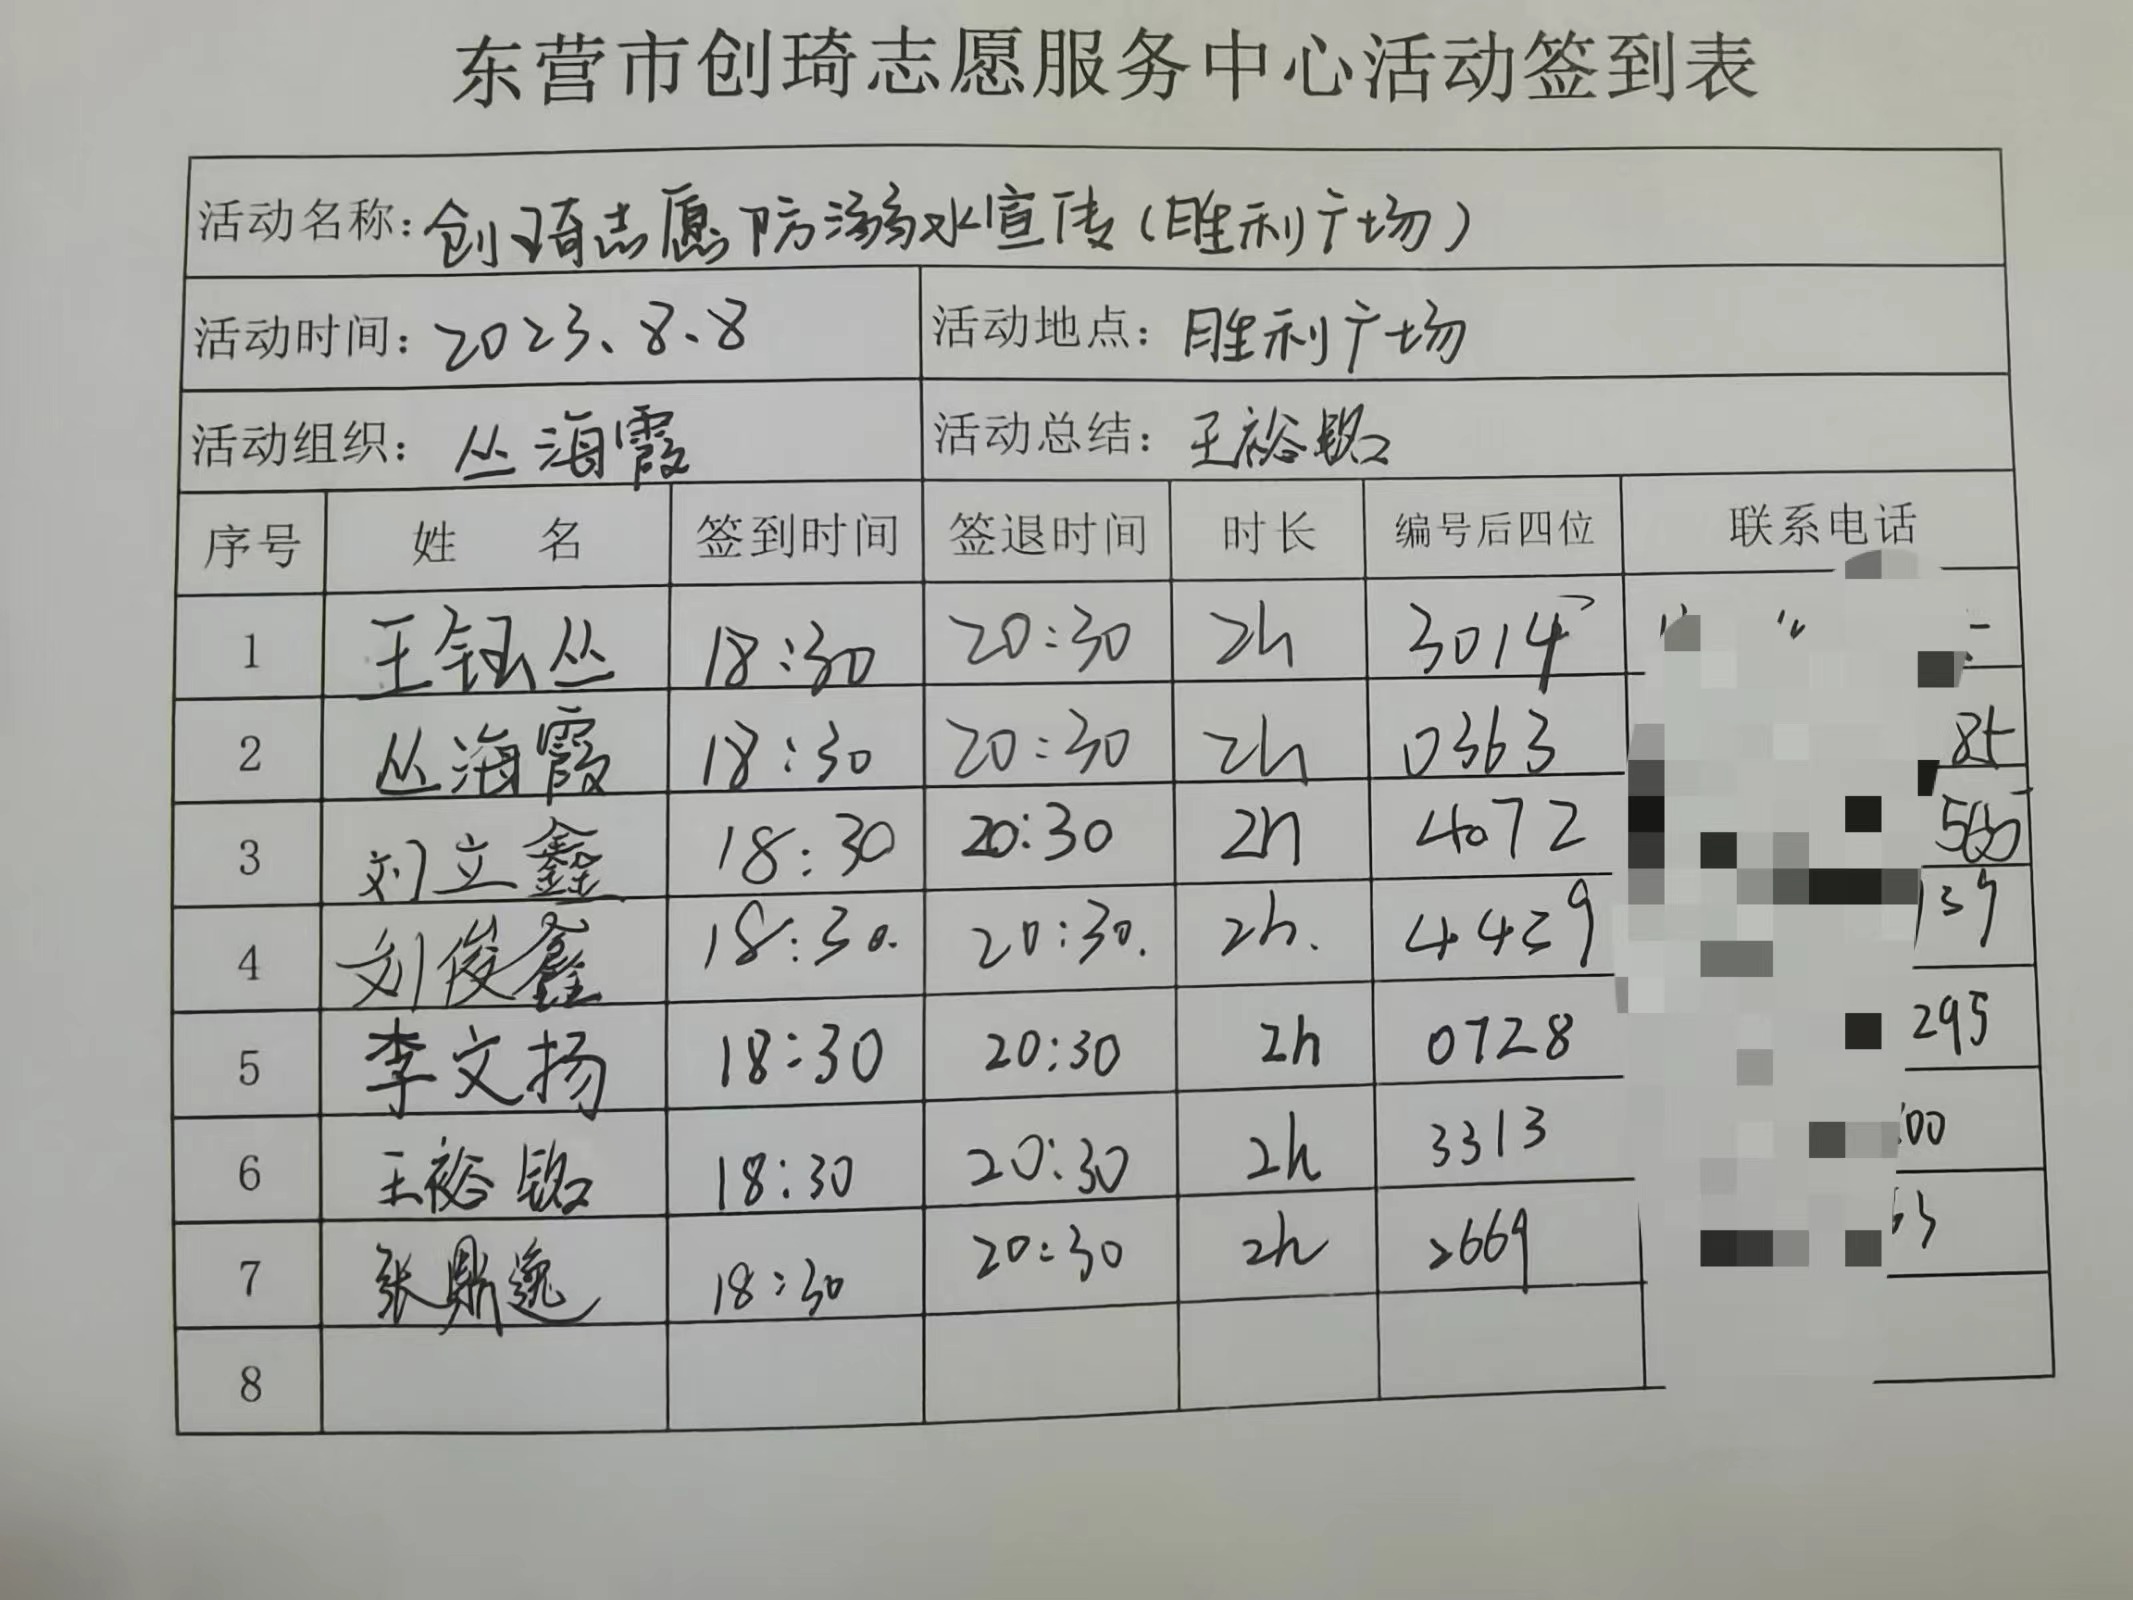 东营市创琦志愿服务中心活动签到表
活动名称：创琦志愿防溺水宣传（胜利广场）
活动时间：2023、8、8 活动地点：胜利广场
活动组织：丛海霞 活动总结：王裕铭
序号 姓 名 签到时间 签退时间 时长 编号后四位 联系电话
1 王钰丛 18:30 20:30 2h 3014
2 丛海霞 18:30 20:30 2h 0363 85
3 刘立鑫 18:30 20:30 2h 4072
4 刘俊鑫 18:30. 20:30. 2h. 4439
5 李文扬 18:30 20:30 2h 0728 295
6 王裕铭 18:30 20:30 2h 3313 00
7 张鼎逸 18:30 20:30 2h 2669
8